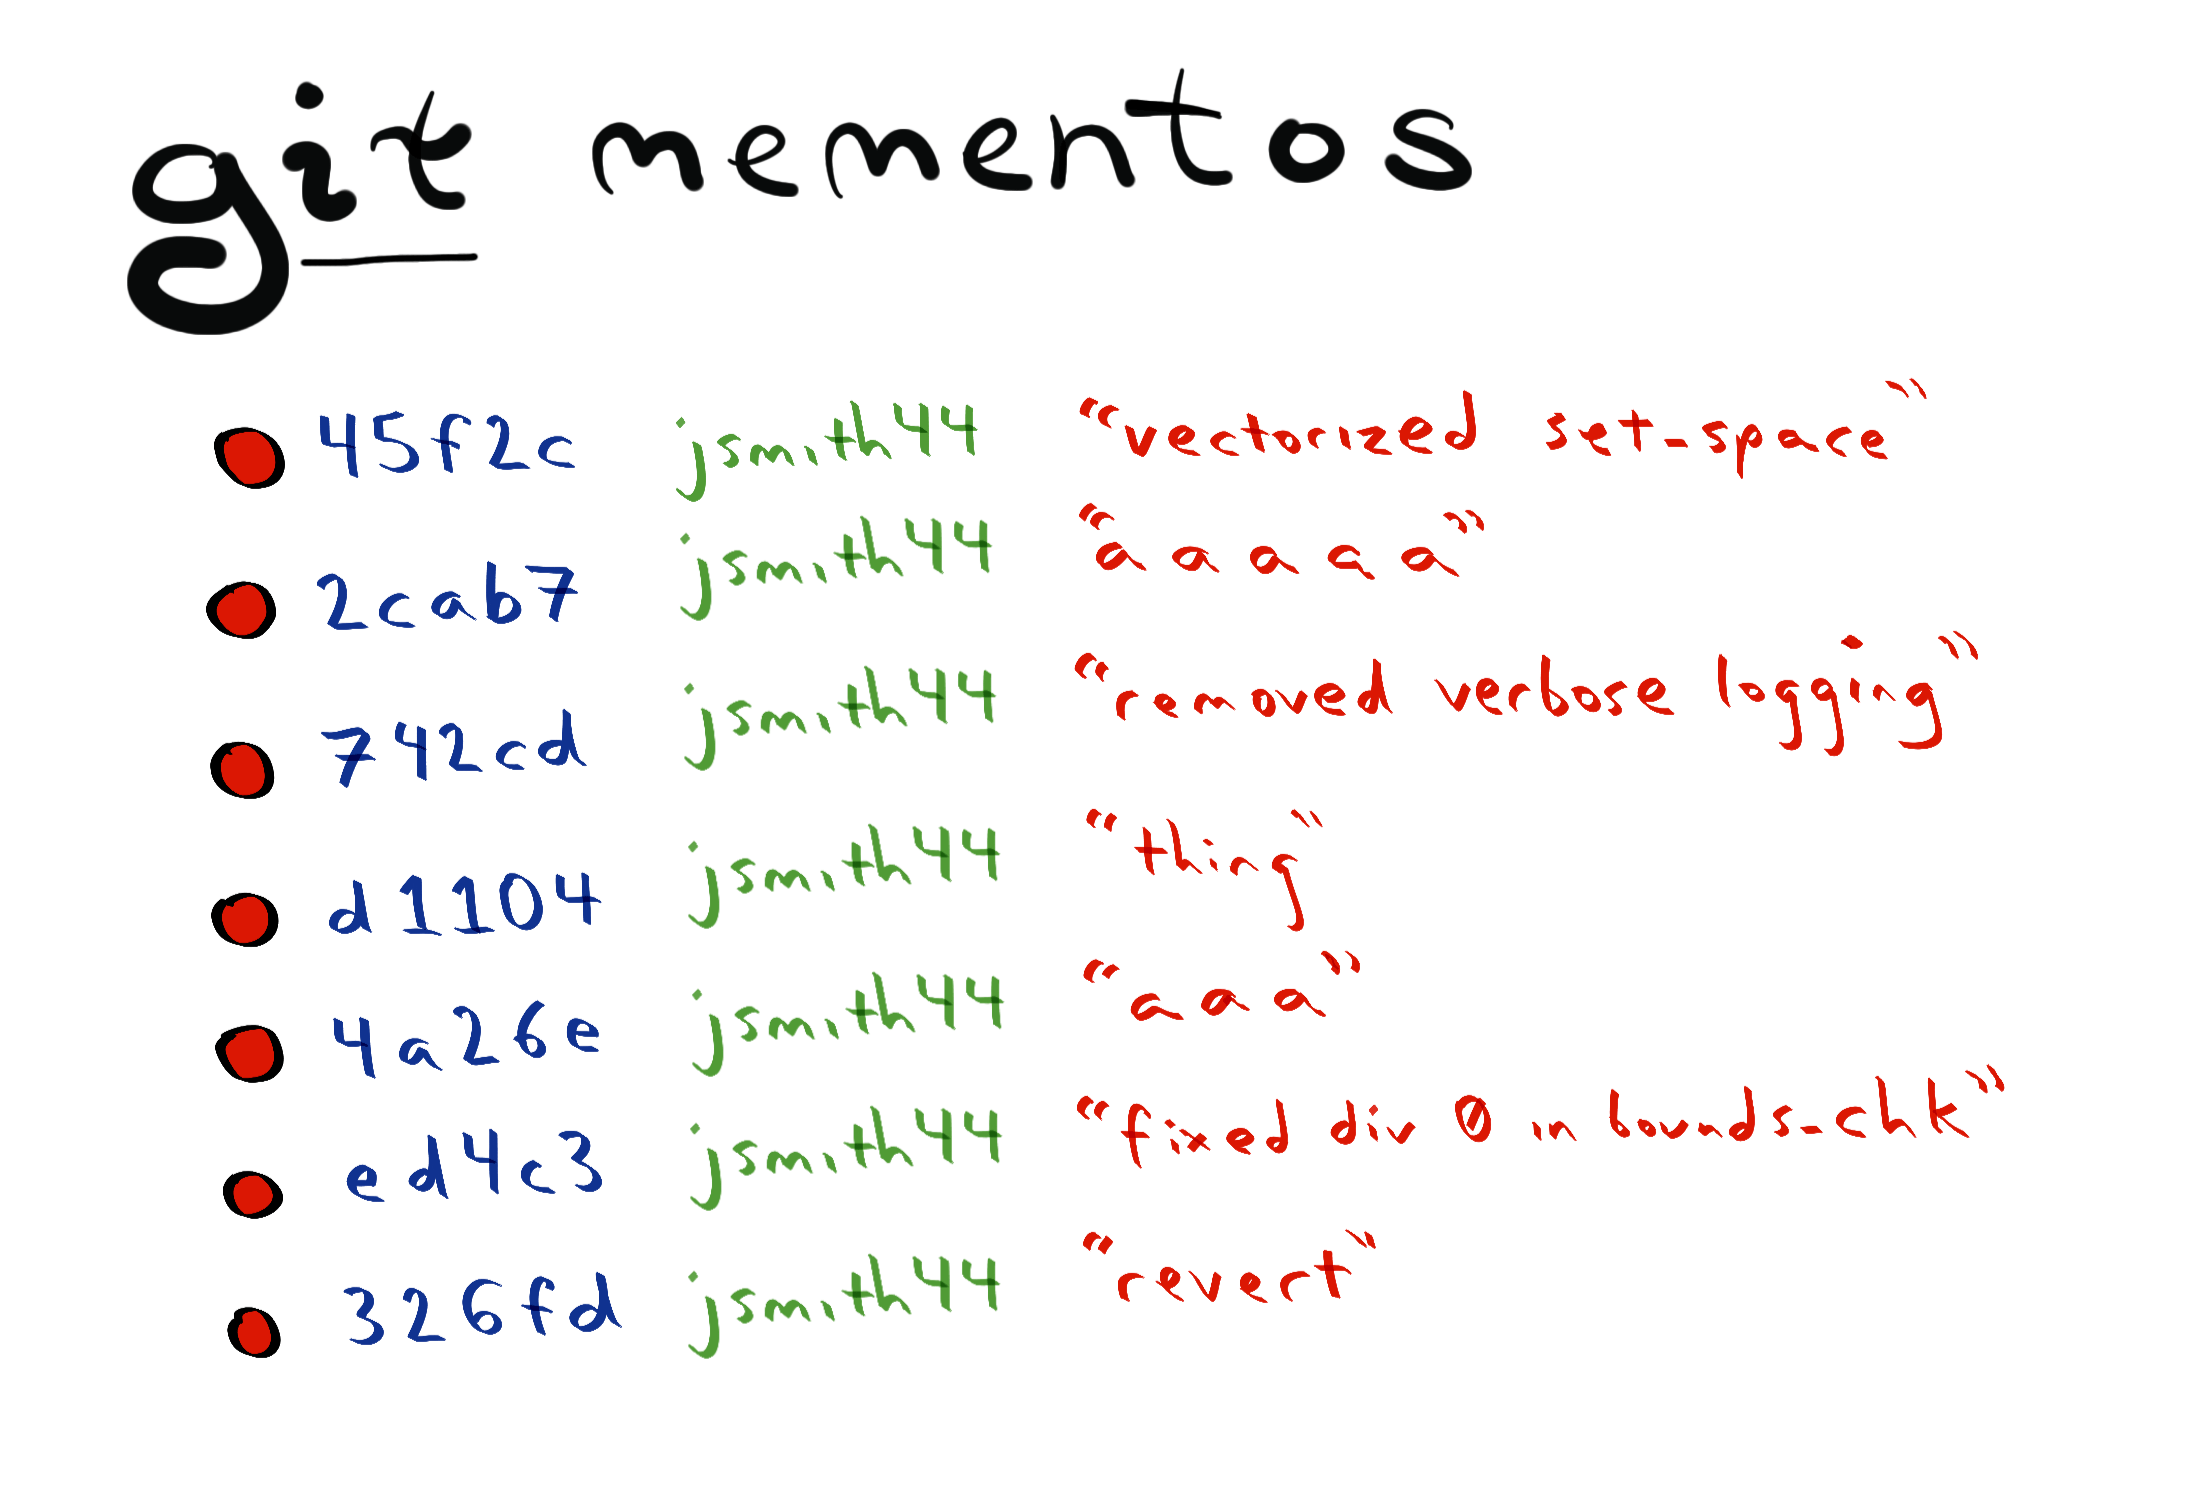 git mementos
45f2c jsmith44 “vectorized set-space”
2cab7 jsmith44 “aaaaa”
742cd jsmith44 “removed verbose logging”
d1104 jsmith44 “thing”
4a26e jsmith44 “aaa”
ed4c3 jsmith44 “fixed div 0 in bounds-chk”
326fd jsmith44 “revert”